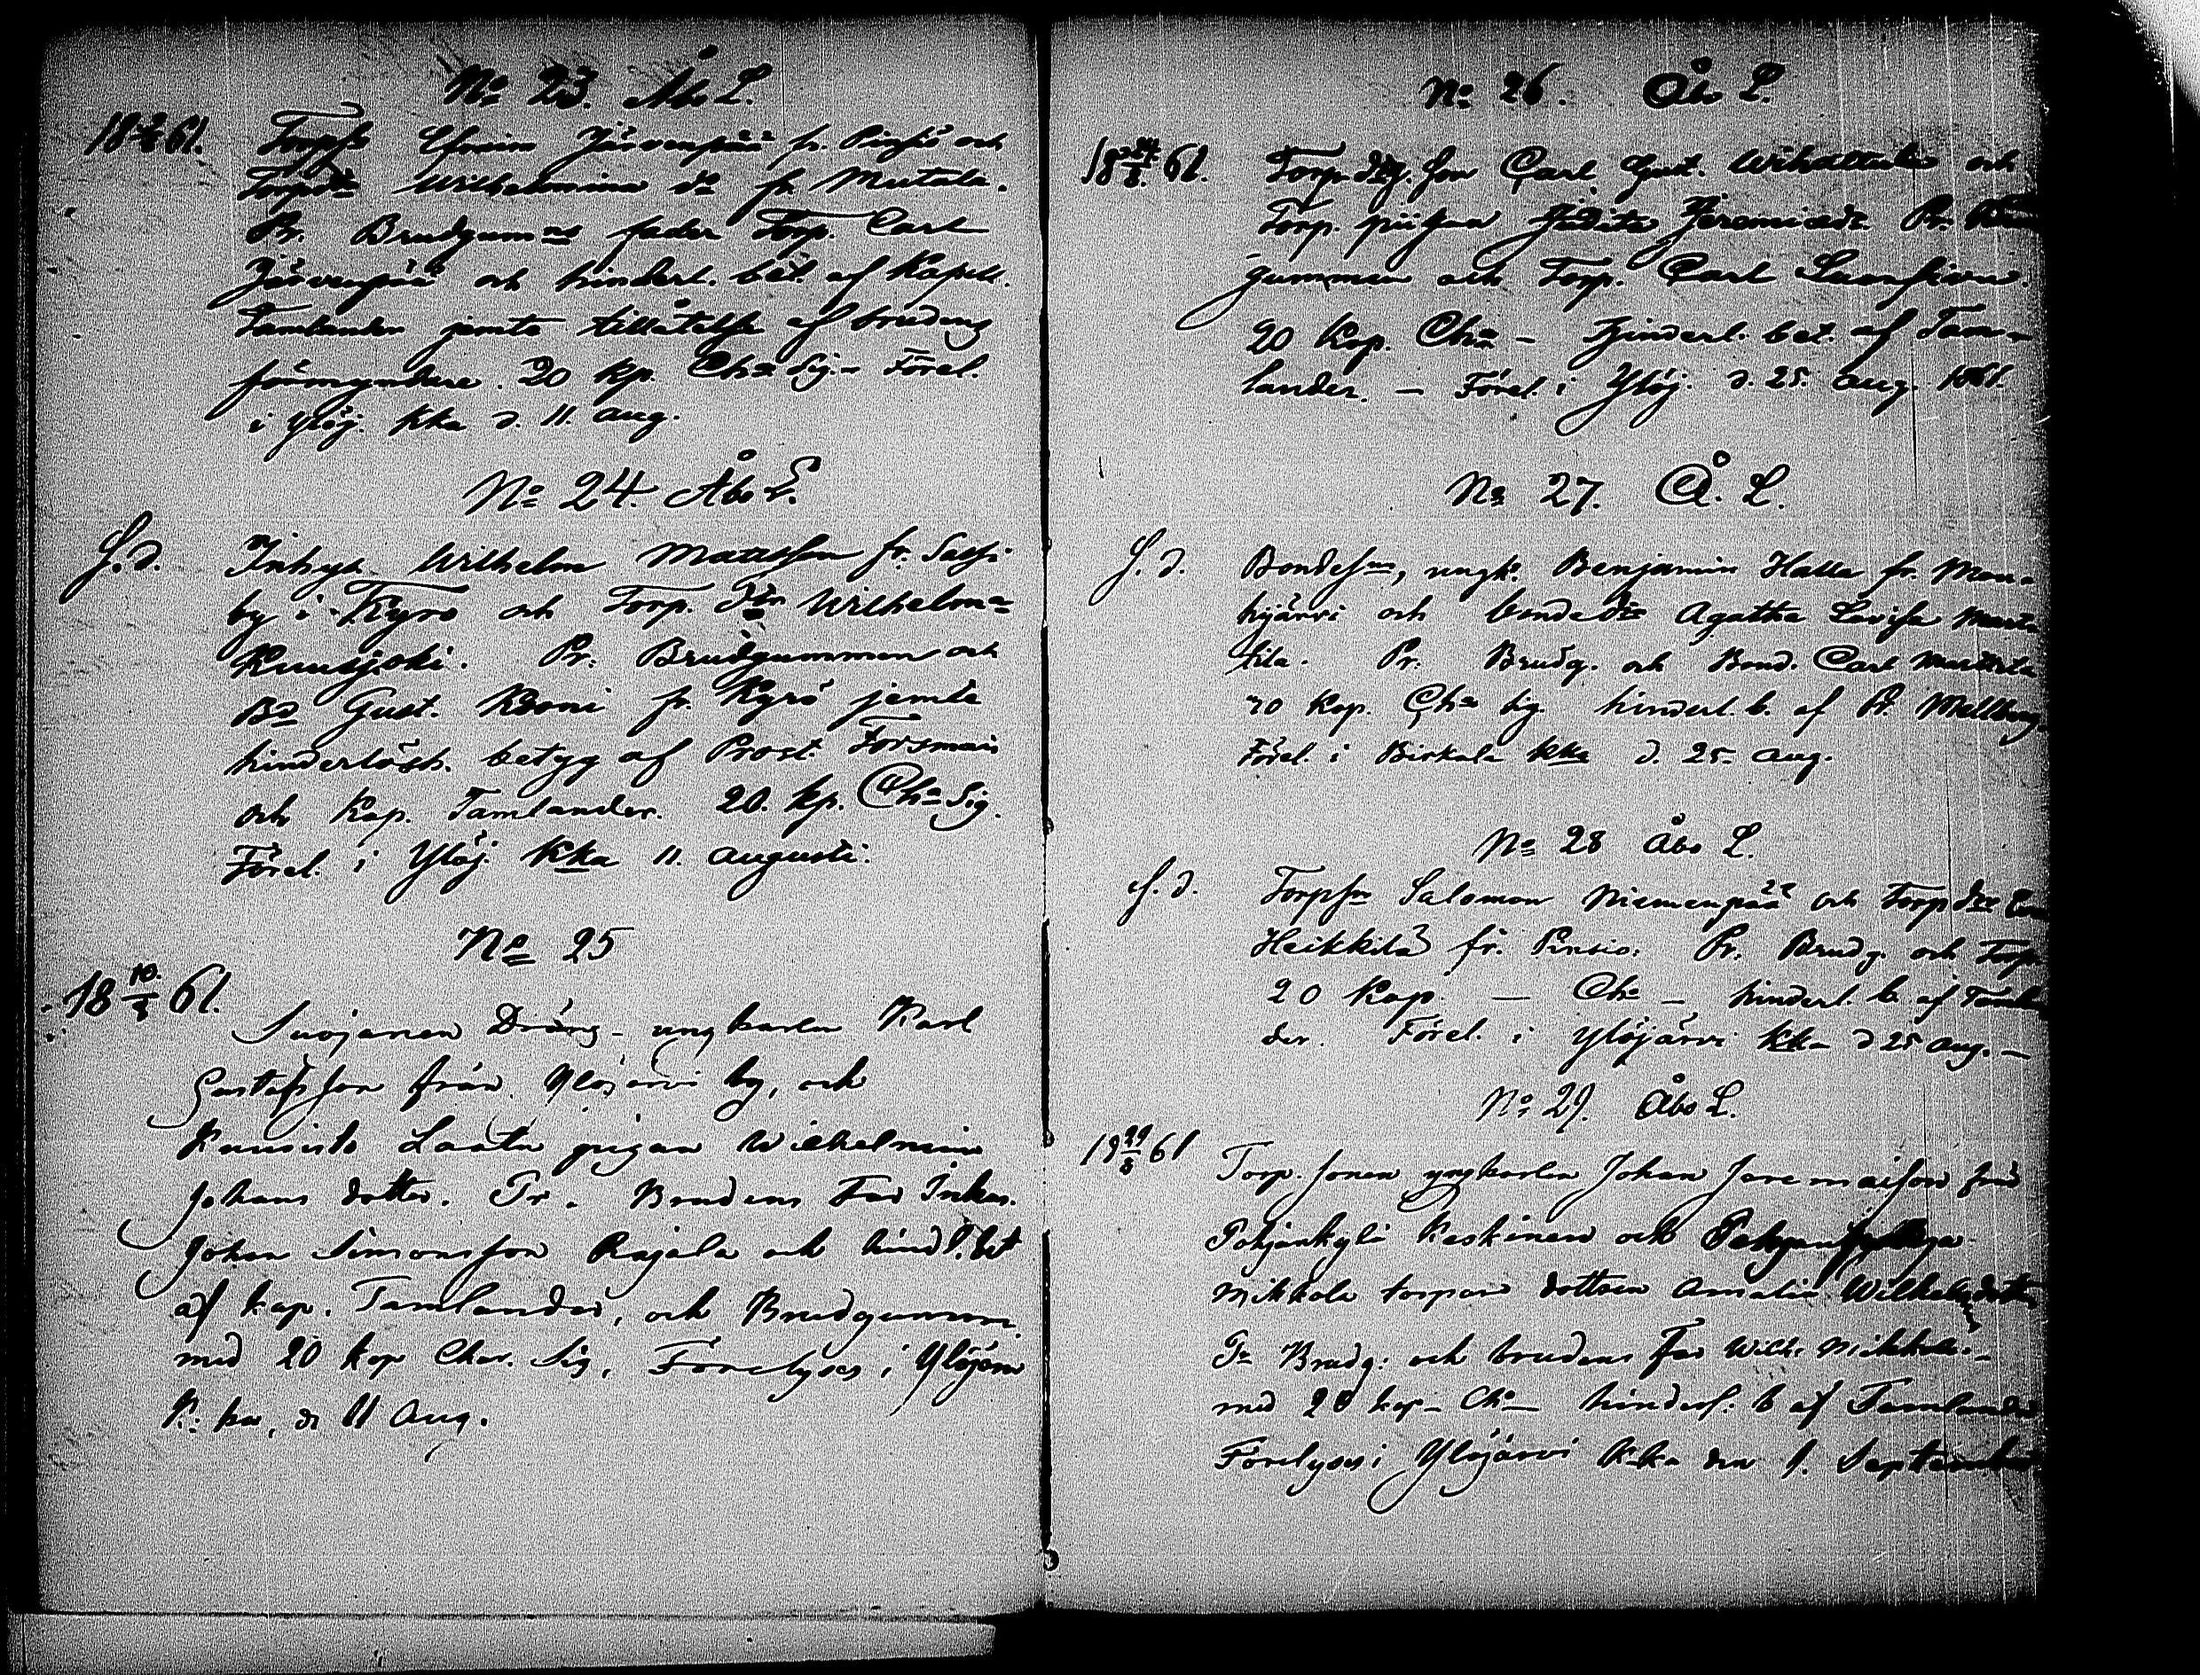 No 23. Åbo L.
18 61. Torps Efraim Järvenpää fr. och
Torpdr Wilhelmina do fr. Mutala.
Pr. Brudgumns fader Torp. Carl
Järvenpää och hinderl. bet. af Kapell.
Tamlander jemte tillåtelse af brudens
förmyndare. 20 kp. Cha Sig. - Förel.
i Ylöj. kka d. 11. aug.
No 24. Åbo L.
S. d. Inhys. Wilhelm Mattsson fr. Sassi
by i Kyro och Torp. dtr Wilhelmna
Kuusjoki. Pr. Brudgummen och
Bd Gust. fr. Kyrö jemte
hinderlösh. betyg af Prost. Forsman
och Kap. Tamlander. 20. kp. Cha Sig.
Förel. i Ylöj. Kka 11. augusti.
No 25
18 10/8 61.
Suojanen Dräng- ungkarlen Karl
Gustafsson från Ylöjärvi by, och
Kuusisto pigan Wilhelmina
Johans dotter. Pr. Brudens Far Inhys.
Johan Simonsson Rajala och hindl. bet
af kap. Tamlander, och Brudgummen
med 20 kop Char. Sig. Förelyses i Ylöjärvi
K: ka, d. 11 Aug.
No 26. Åbo L.
18 24/8 61. Torp. Son Carl Gust. och
Torp. pi Judita Jeremiedr. Pr. Brud
gummen och Torp. Carl
20 Kop. Cha - Hinderl. bet. af Tam-
lander. - Förel. i Ylöj. d. 25. aug. 1861.
No 27. Å. L.
S. d. Bondesn, ungk. Benjamin Halla fr. Man-
hijärvi och bondedtr Agatha Lovisa Mart
tila. Pr. Brudg. och Bond. Carl Marttila
20 Kop. Cha Sig. hinderl. b. af Pr. Mellberg.
Förel. i Birkala kka d. 25. aug.
No 28 Åbo L.
S. d. Torpsn Salomon Niemenpää och Torpdtr
Heikkilä fr. Pinsiö. Pr. Brudg. och Torp.
20 Kop. - Cha - hinderl. b. af Tamlan
der. Förel. i Ylöjärvi kka d 25 aug. -
No 29. Åbo L.
19 29/8 61 Torp. sonen ungkarlen Johan Jeremaison från
Pohjankylä Keskinen och
Mikkola torpare dottren Amalia Wilhelmsdotter
Pr Brudg. och brudens Far Wilh. Mikkola. -
med 20 kop - Cha - hinderl. b af Tamlander
Förelyses i Ylöjärvi K-ka den 1. September